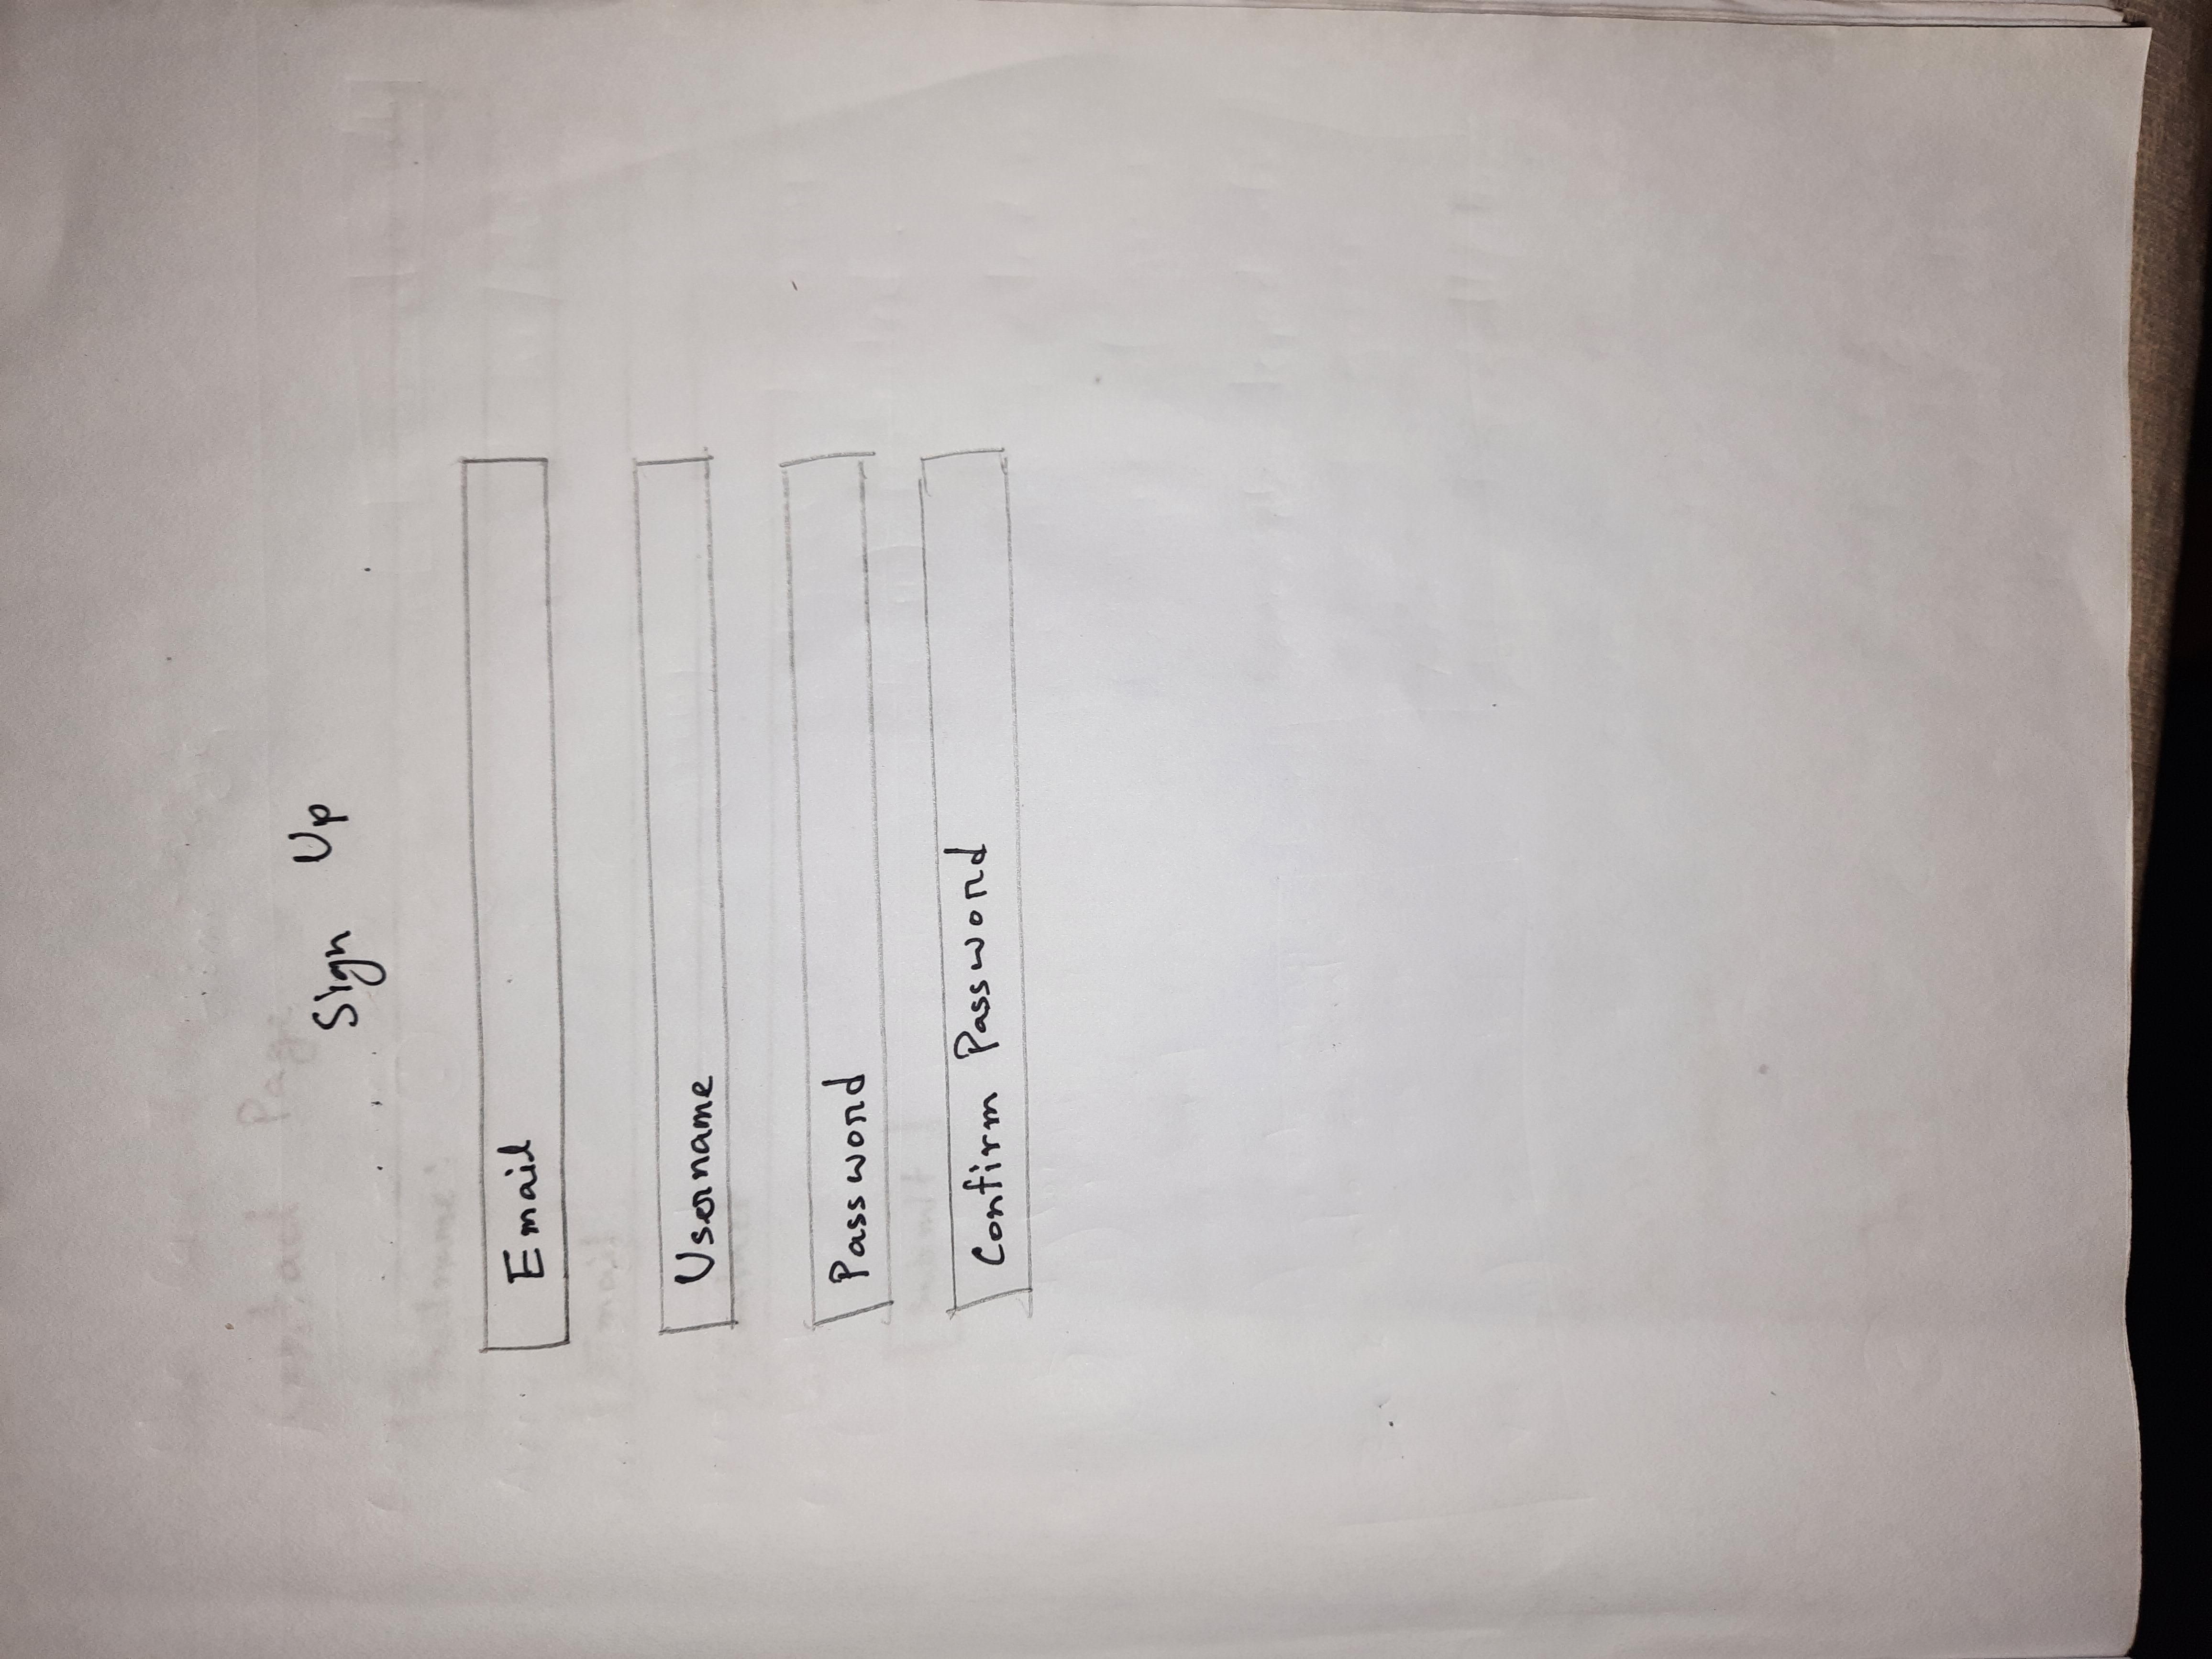 Sign Up
Email
Username
Password
Confirm Password